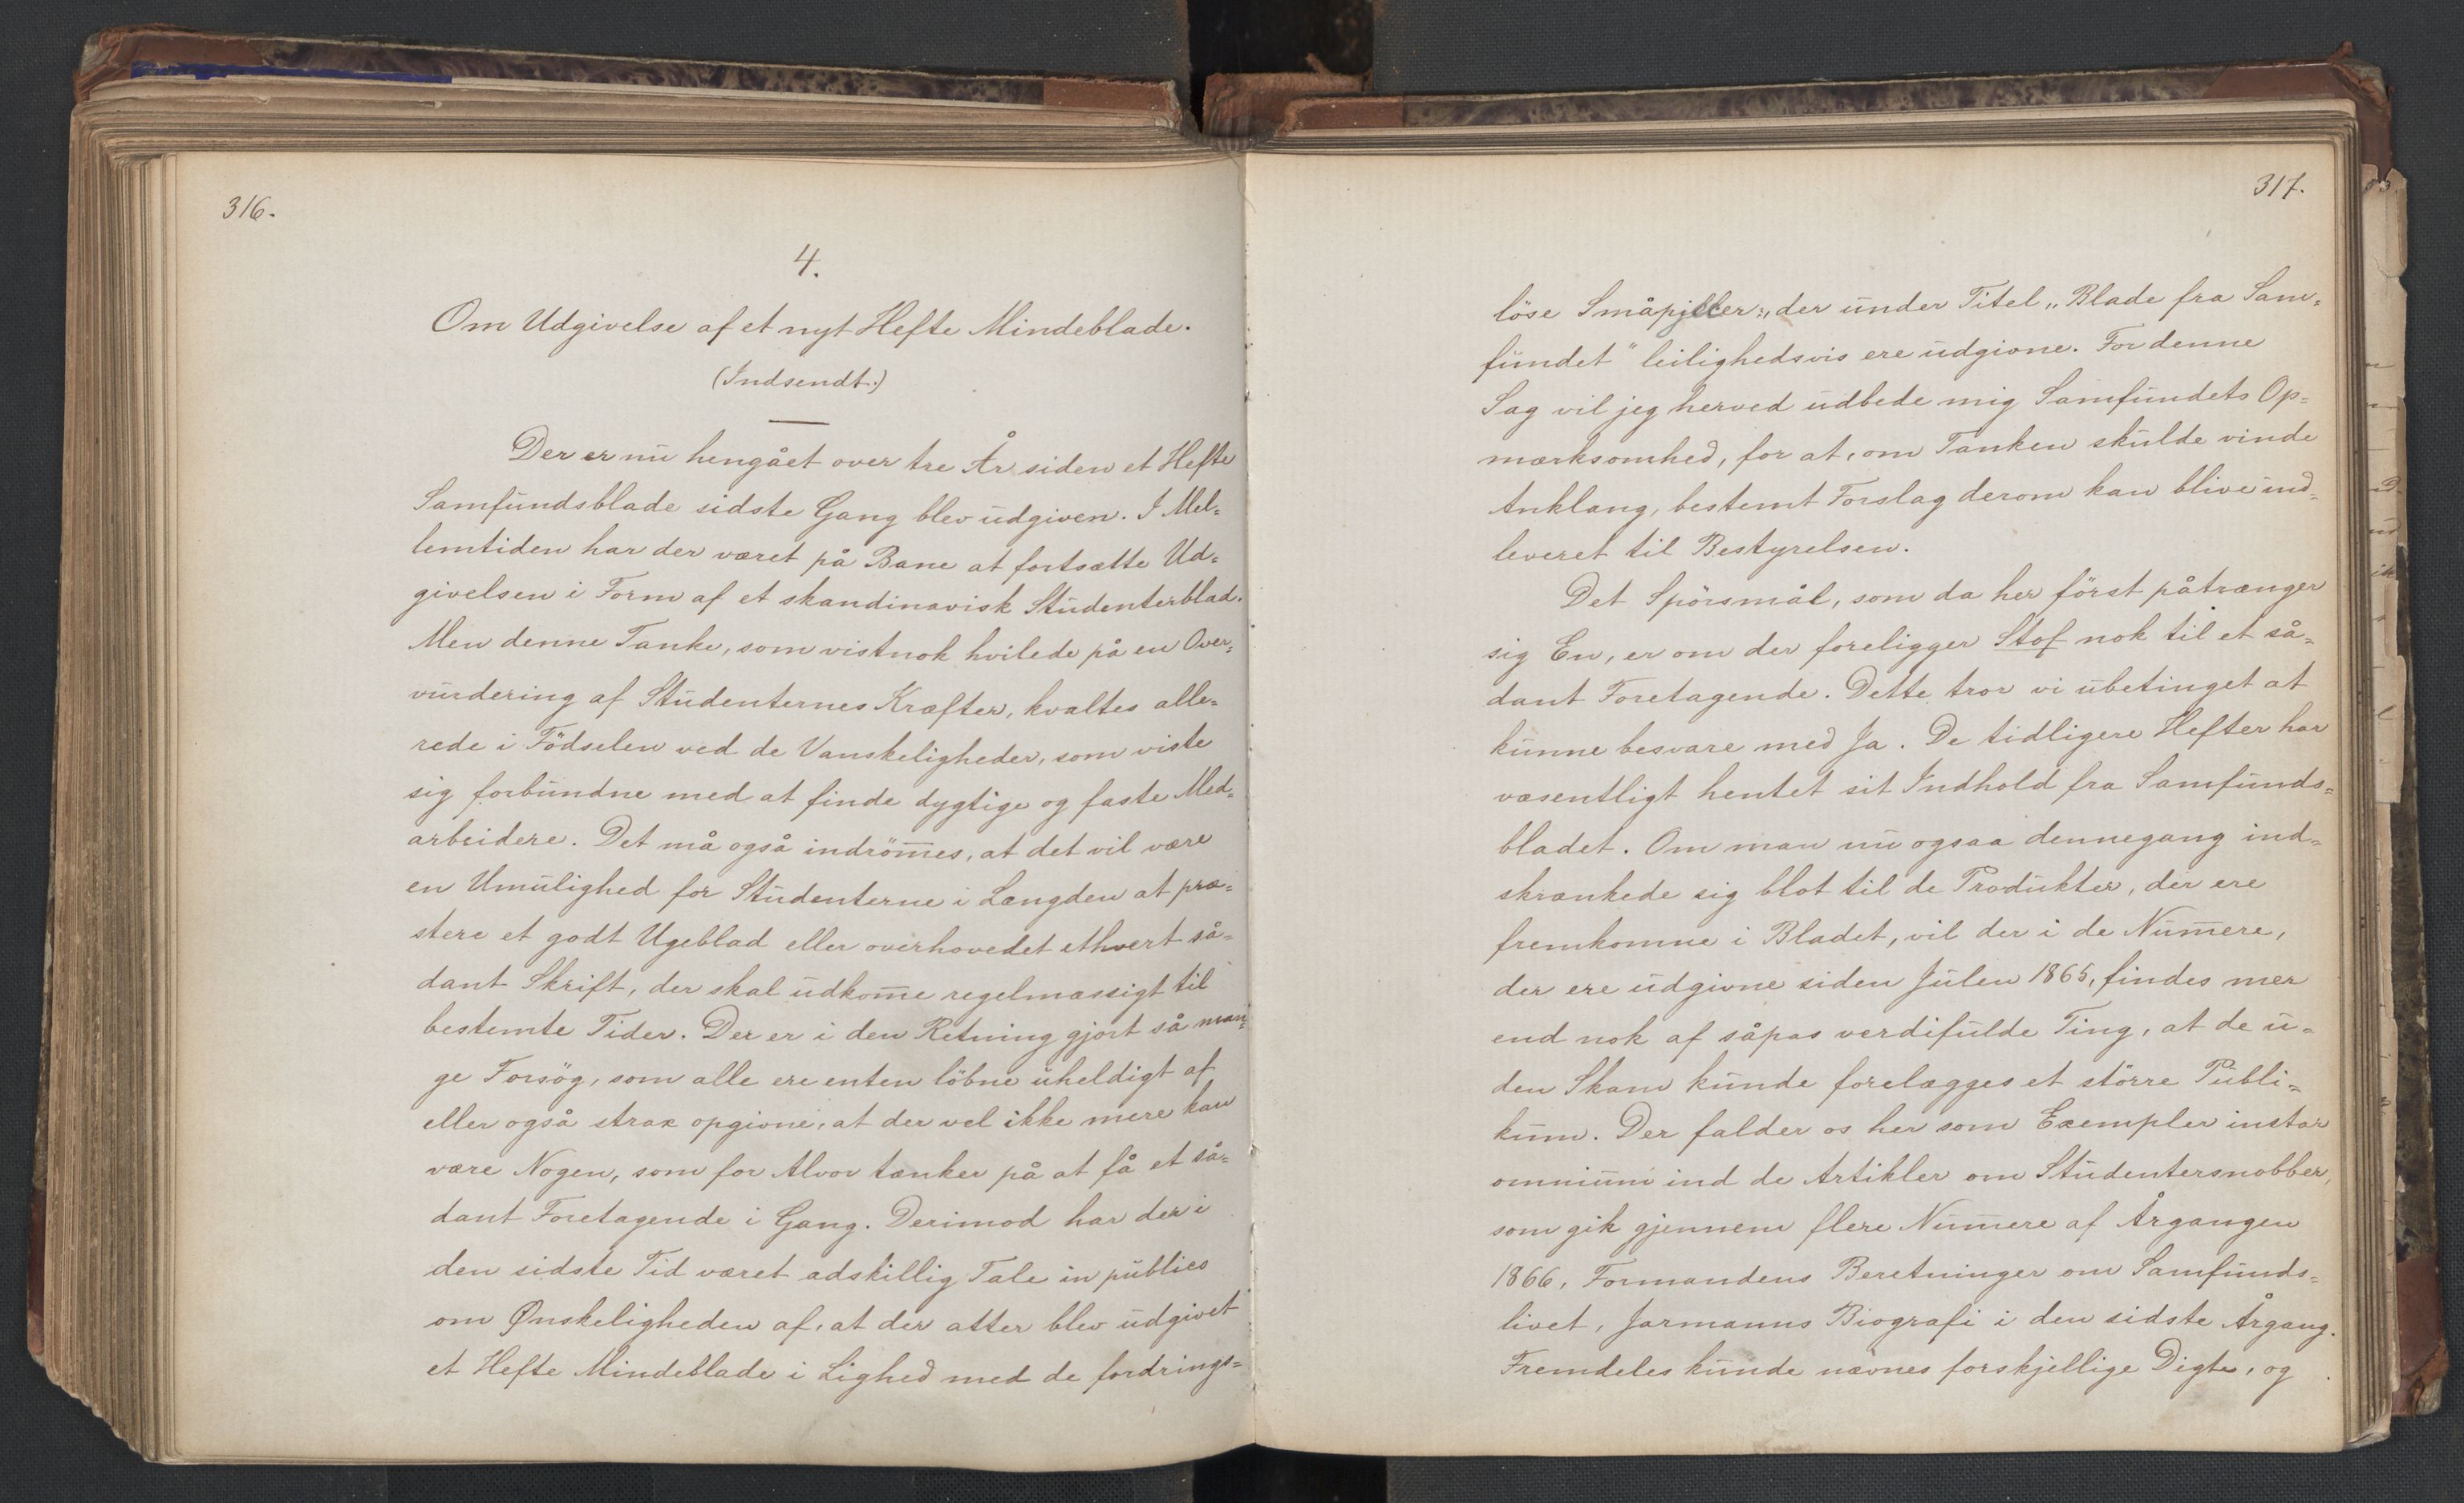 316.
4.
Om Udgivelse af et nyt Hefte Mindeblade.
(Indsendt.)
Der er nu hengået over tre År siden et Hefte
Samfundsblade sidste Gang blev udgiven. I Mel=
lemtiden har der været på Bane at fortsætte Ud=
givelsen i Form af et skandinavisk Studenterblad.
Men denne Tanke, som vistnok hvilede på en Over=
vurdering af Studenternes Kræfter, kvaltes alle=
rede i Födselen ved de Vanskeligheder, som viste
sig forbundne med at finde dygtige og faste Med=
arbeidere. Det må også indröm̅es, at det vil være
en Umulighed for Studenterne i Længden at præ=
stere et godt Ugeblad eller overhovedet ethvert så=
dant Skrift, der skal udkom̅e regelmæssigt til
bestemte Tider. Der er i den Retning gjort så man=
ge Forsög, som alle ere enten löbne uheldigt af
eller også strax opgivne, at der vel ikke mere kan
være Nogen, som for Alvor tænker på at få et så=
dant Foretagende i Gang. Derimod har der i
den sidste Tid været adskillig Tale in publico
om Ønskeligheden af, at der atter blev udgivet
et Hefte Mindeblade i Lighed med de fordrings=
317.
löse Småpjecer, der under Titel „Blade fra Sam=
fundet" leilighedsvis ere udgivne. For denne
Sag vil jeg herved udbede mig Samfundets Op=
mærksomhed, for at, om Tanken skulde vinde
Anklang, bestemt Forslag derom kan blive ind=
leveret til Bestyrelsen.
Det Spörsmål, som da her först påtrænger
sig En, er om der foreligger Stof nok til et så=
dant Foretagende. Dette tror vi ubetinget at
kunne besvare med Ja. De tidligere Hefter har
væsentligt hentet sit Indhold fra Samfunds=
bladet. Om man nu ogsaa dennegang ind=
skrænkede sig blot til de Produkter, der ere
fremkomne i Bladet, vil der i de Num̅ere,
der ere udgivne siden Julen 1865, findes mer
end nok af såpas verdifulde Ting, at de u=
den Skam kunde forelægges et större Publi=
kum. Der falder os her som Exempler instar
omnium ind de Artikler om Studentersnobber,
som gik gjennem flere Num̅ere af Årgangen
1866, Formandens Beretninger om Samfunds=
livet, Jarmanns Biografi i den sidste Årgang.
Fremdeles kunde nævnes forskjellige Digte, og